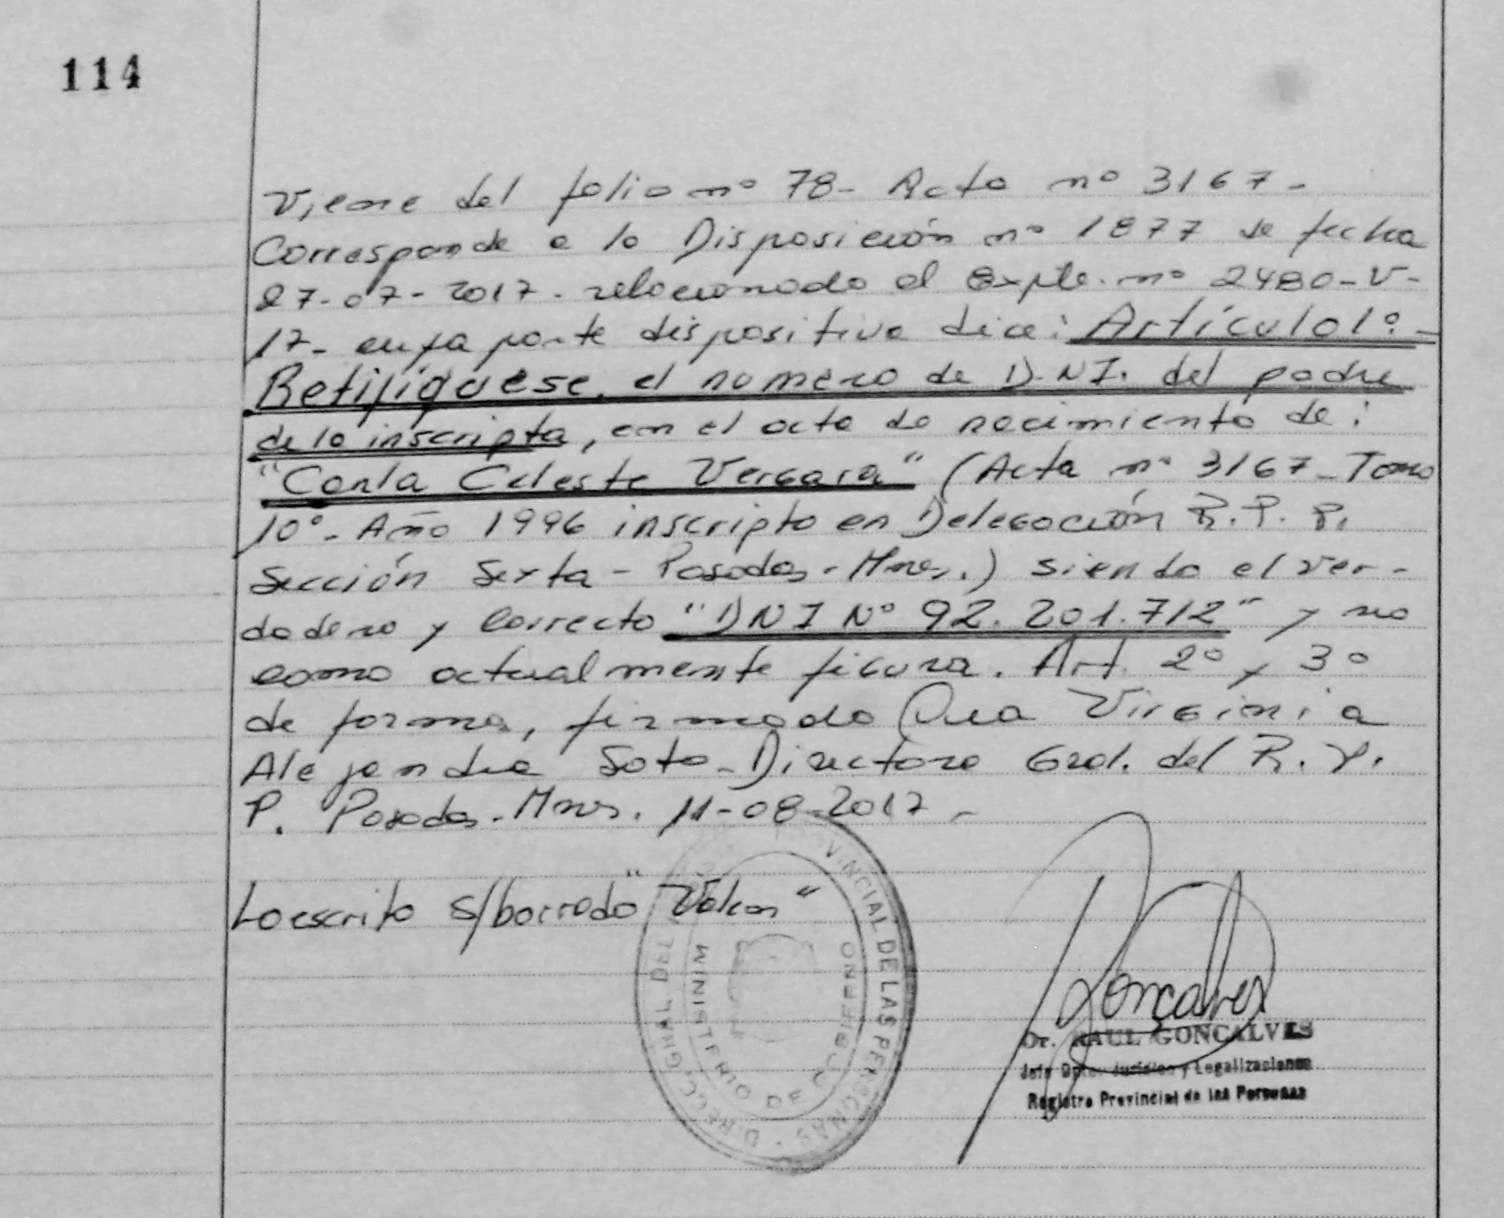 114
Viene del folio nº 78- Acta nº 3167-
Corresponde a la Disposición nº 1877 de fecha
27-07-2017- relacionado al Expte. nº 2480-V-
17- cuya parte dispositiva dice: Artículo 1º-
Retifíquese, el número de D.N.I. del padre
de la inscripta, en el acta de nacimiento de:
"Carla Celeste Vergara" (Acta nº 3167-Tomo
10º- Año 1996 inscripto en Delegación R.P.P.
Sección Sexta - Posadas-Mnes.) siendo el ver-
dadero y correcto "DNI Nº 92.201.712" y no
como actualmente figura. Art. 2º y 3º
de forma, firmado Dra Virginia
Alejandra Soto-Directora Gral. del R.P.
P. Posadas-Mnes. 11-08-2017-
Lo escrito s/borrado "Valen"
DIRECC. GRAL. DEL PROVINCIAL DE LAS PERSONAS
MINISTERIO DE GOBIERNO
Goncalves
Dr. RAUL GONCALVES
Jefe Dpto. Jurídico y Legalizaciones
Registro Provincial de las Personas